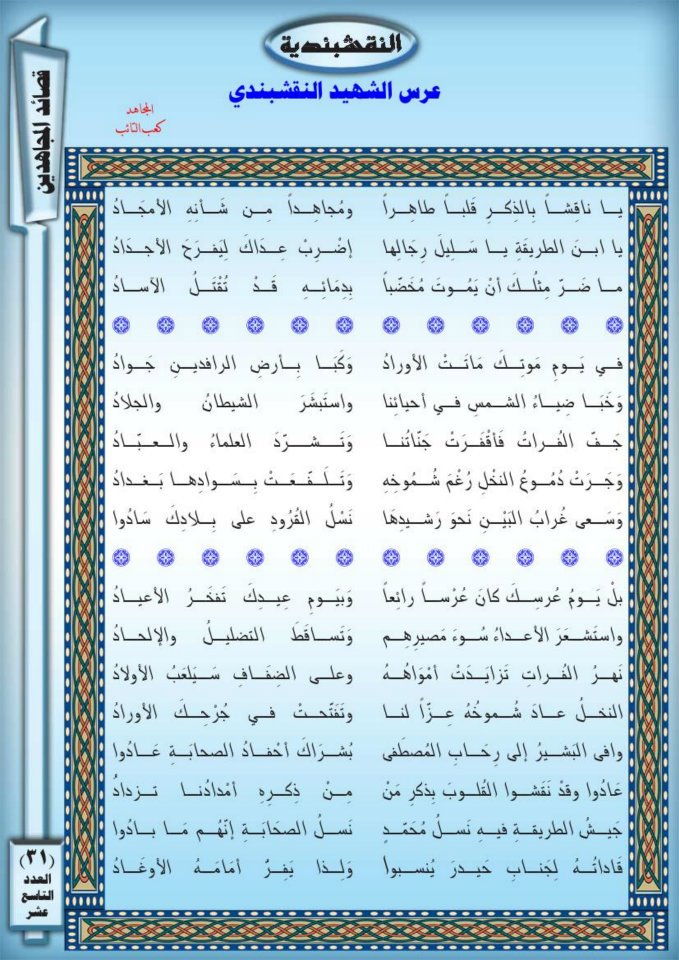 النقشبندية
عرس الشهيد النقشبندي
المجاهد
كعب التائب
قصائد المجاهدين
يا ناقِشاً بِالذِكرِ قَلباً طاهِراً ومُجاهِداً مِن شَأنِهِ الأمجَادُ
يا ابنَ الطريقَة يا سَليلَ رِجَالِها إضْرِبْ عِدَاكَ لِيَفرَحَ الأجدَادُ
ما ضَرّ مِثلُكَ أنْ يَمُوتَ مُخَضّباً بِدِمَائِهِ قَدْ تُقْتَلُ الآسادُ
في يَومِ مَوتِكَ مَاتَتْ الأورادُ وَكَبَا بِأرضِ الرافدينِ جَوادُ
وَخَبَا ضِيَاءُ الشمسِ في أحيائِنا واستَبشَرَ الشيطانُ والجلادُ
جَفّ الفُراتُ فَأقْفَرَتْ جَنّاتُنا وَتَشرّدَ العلماءُ والعبّادُ
وَجَرَتْ دُمُوعُ النخْلِ رُغْمَ شُمُوخِهِ وَتَلَفّعَتْ بِسَوادِها بَغدادُ
وَسَعى غُرابُ البَيْنِ نَحوَ رَشيدِهَا نَسْلُ القُرُودِ على بِلادِكَ سَادُوا
بلْ يَومُ عُرسِكَ كانَ عُرْساً رائِعاً وَبيَومِ عِيدِكَ تَفخَرُ الأعيادُ
واستَشعَرَ الأعداءُ سُوءَ مَصيرِهِم وَتَساقَطَ التضليلُ والإلحادُ
نَهرُ الفُراتِ تَزايَدَتْ أمْوَاهُهُ وعلى الضِفَافِ سَيَلعَبُ الأولادُ
النخلُ عادَ شُموخُهُ عِزّاً لنا وتَفَتّحتْ في جُرْحِكَ الأورادُ
وافى البَشيرُ إلى رِحَابِ المُصطَفى بُشرَاكَ أحْفادُ الصحابَةِ عَادُوا
عَادُوا وقدْ نَقَشوا القُلوبَ بِذكرِ مَنْ مِنْ ذِكرِهِ أمْدادُنا تزدادُ
جَيشُ الطريقةِ فيهِ نَسلُ مُحَمّدٍ نَسلُ الصحَابَةِ إنّهُم مَا بادُوا
قَاداتُهُ لِجَنابِ حَيدَرَ يُنسبوا وَلِذا يَفِرُّ أمَامَهُ الأوغَادُ
(٣١)
العدد
التاسع
عشر